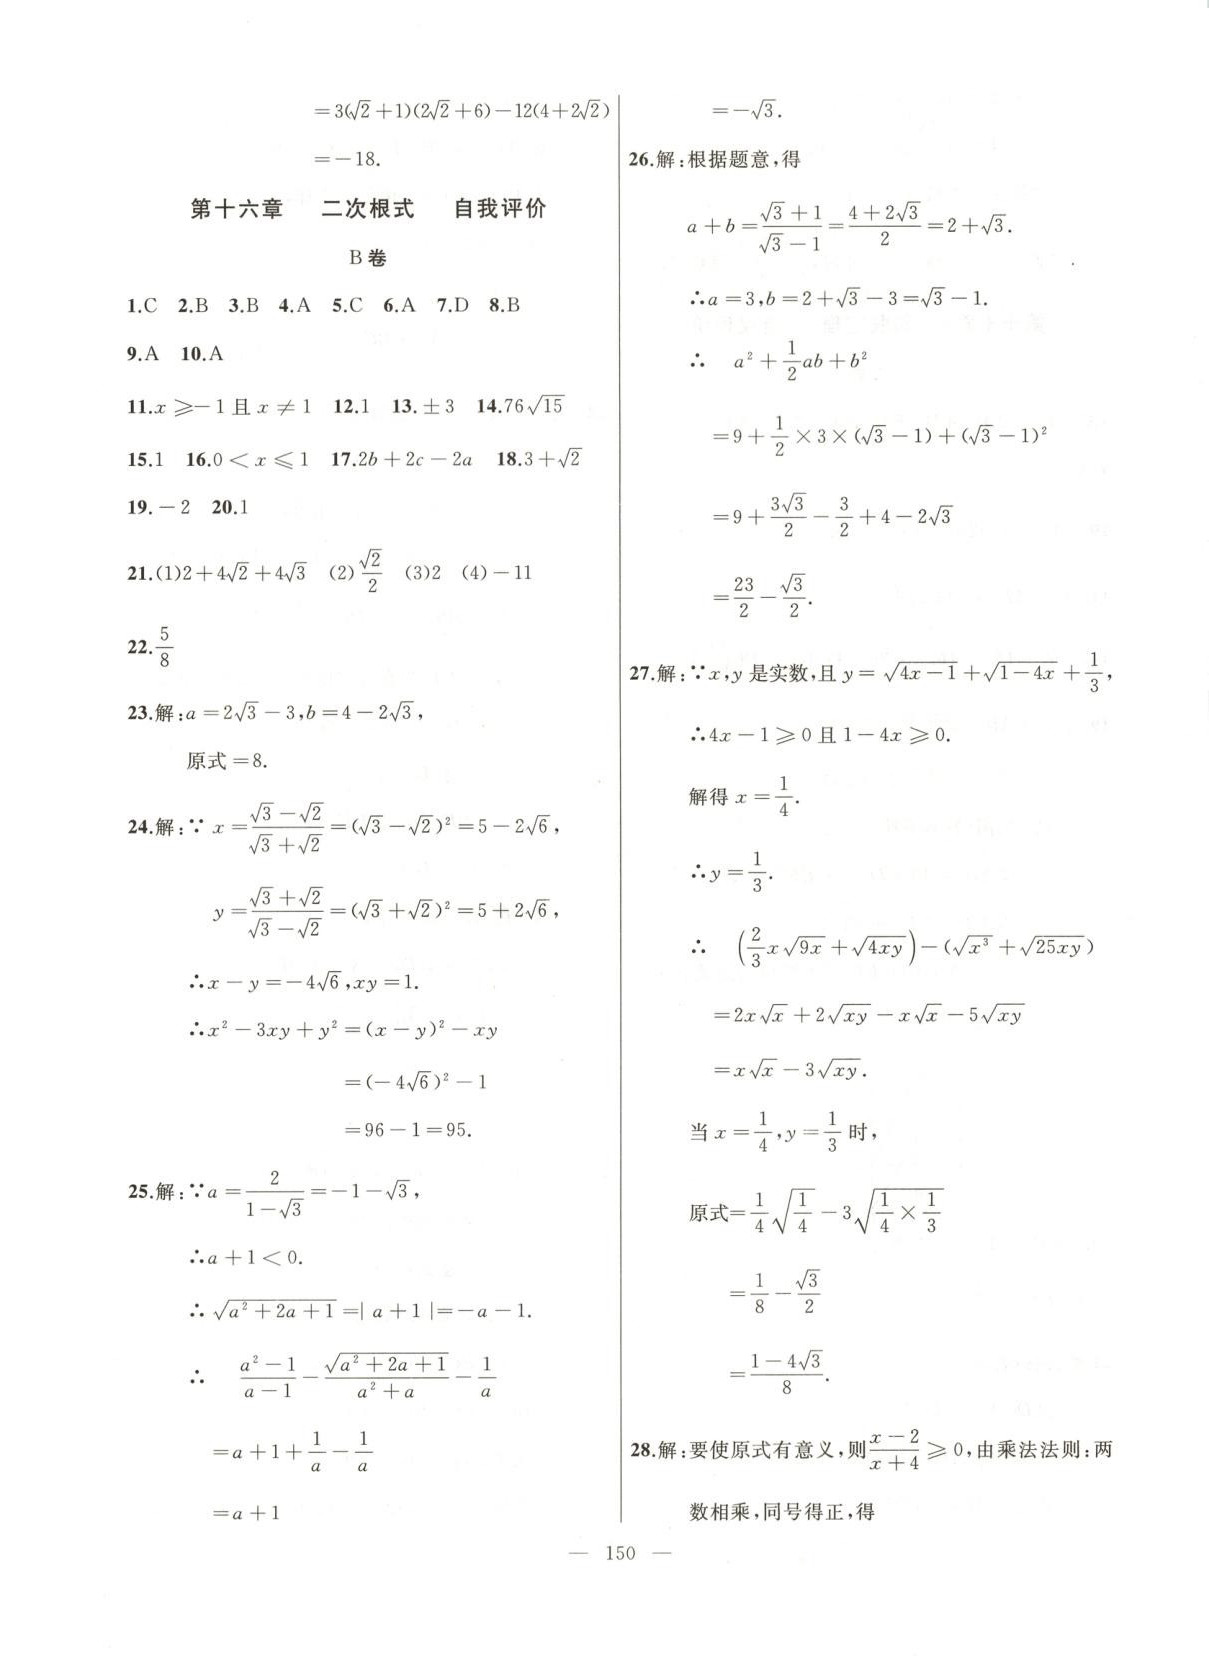 =3(√2+1)(2√2+6)-12(4+2√2)
=-18.
第十六章 二次根式 自我评价
B卷
1.C 2.B 3.B 4.A 5.C 6.A 7.D 8.B
9.A 10.A
11.x⩾-1且x≠1 12.1 13.±3 14.76√15
15.1 16.0<x⩽1 17.2b+2c-2a 18.3+√2
19.-2 20.1
21.(1)2+4√2+4√3 (2)√2/2 (3)2 (4)-11
22.5/8
23.解:a=2√3-3,b=4-2√3,
原式=8.
24.解:∵x=(√3-√2)/(√3+√2)=(√3-√2)²=5-2√6,
y=(√3+√2)/(√3-√2)=(√3+√2)²=5+2√6,
∴x-y=-4√6,xy=1.
∴x²-3xy+y²=(x-y)²-xy
=(-4√6)²-1
=96-1=95.
25.解:∵a=2/(1-√3)=-1-√3,
∴a+1<0.
∴√(a²+2a+1)=|a+1|=-a-1.
∴ (a²-1)/(a-1)-√(a²+2a+1)/(a²+a)-1/a
=a+1+1/a-1/a
=a+1
=-√3.
26.解:根据题意,得
a+b=(√3+1)/(√3-1)=(4+2√3)/2=2+√3.
∴a=3,b=2+√3-3=√3-1.
∴ a²+1/2ab+b²
=9+1/2×3×(√3-1)+(√3-1)²
=9+3√3/2-3/2+4-2√3
=23/2-√3/2.
27.解:∵x,y是实数,且y=√(4x-1)+√(1-4x)+1/3,
∴4x-1⩾0且1-4x⩾0.
解得x=1/4.
∴y=1/3.
∴ (2/3x√(9x)+√(4xy))-(√(x³)+√(25xy))
=2x√x+2√(xy)-x√x-5√(xy)
=x√x-3√(xy).
当x=1/4,y=1/3时,
原式=1/4√(1/4)-3√(1/4×1/3)
=1/8-√3/2
=(1-4√3)/8.
28.解:要使原式有意义,则(x-2)/(x+4)⩾0,由乘法法则:两
数相乘,同号得正,得
— 150 —